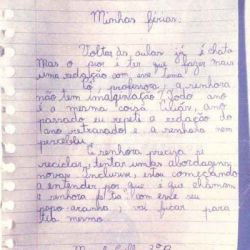 Minhas férias.
Voltar às aulas já é chato
Mas o pior é ter que fazer mais
uma redação com esse tema.
Pô, professora, a senhora
não tem imaginação? Todo ano
é a mesma coisa. Aliás, ano
passado eu repeti a redação do
ano retrasado e a senhora nem
percebeu.
E senhora precisa se
reciclar, tentar umas abordagens
novas. Inclusive, estou começando
a entender por que é que chamam
a senhora de tia. Com esse seu
papo-aranha, vai ficar para
tia mesmo.